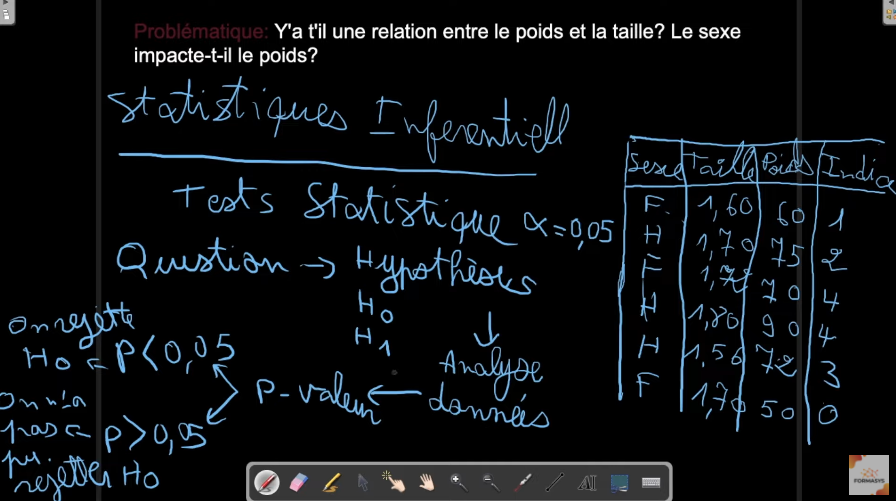 Problématique: Y'a t'il une relation entre le poids et la taille? Le sexe
impacte-t-il le poids?
Statistiques Inferentiell
Tests Statistique α = 0,05
Question → Hypothèses
H0
H1
Analyse
données
P-valeur
P < 0,05
On rejette
H0
P > 0,05
On n'a
pas
pu
rejetter H0
Sexe Taille Poids Indice
F 1,60 60 1
H 1,70 75 2
F 1,72 70 4
H 1,80 90 4
H 1,56 72 3
F 1,70 50 0
FORMASYS